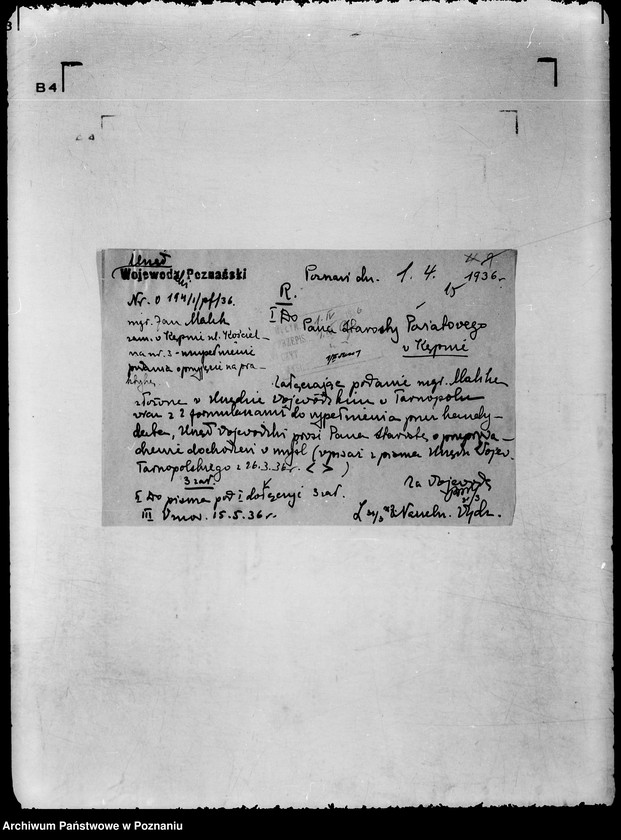 B4
Urząd
Wojewodzki Poznański
Poznań dn. 1. 4. 1936 r.
Nr. O 194/1/pf/36.
R.
I Do
Pana Starosty Powiatowego
w Kępnie
mgr. Jan Malik
zam. w Kępnie ul. Kościel-
na nr. 3 - uzupełnienie
podania o przyjęcie na pra-
ktykę.
Załączając podanie mgr. Malika
złożone w Urzędzie Wojewódzkim w Tarnopolu
wraz z 2 formularzami do wypełnienia przez kandy-
data, Urząd Wojewódzki prosi Pana Starostę o przeprowa-
dzenie dochodzeń w myśl (wpisać z pisma Urzędu Wojew.
Tarnopolskiego z 26.3.36 r. < > )
3 zał.
II Do pisma pod I dołączyć 3 zał.
III Wznow. 15.5.36 r.
Za Wojewodę
Naczeln. Wydz.
Archiwum Państwowe w Poznaniu